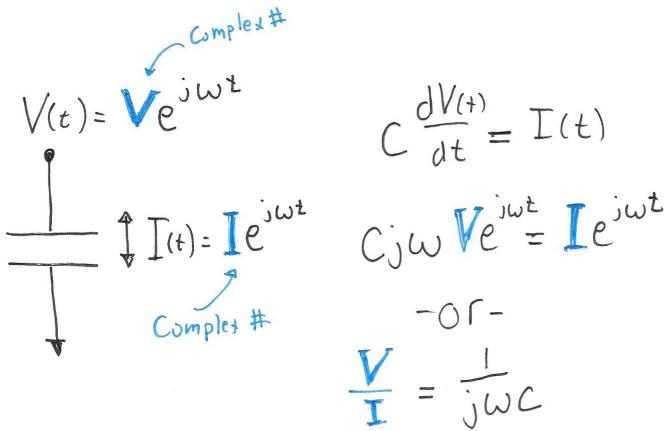 Complex #
V(t) = V e^{jωt}
I(t) = I e^{jωt}
Complex #
C dV(t)/dt = I(t)
Cjω V e^{jωt} = I e^{jωt}
-or-
V/I = 1/jωC